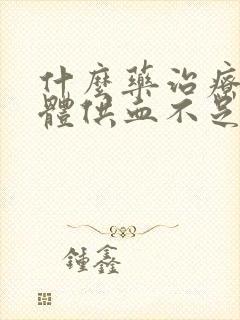 什麼藥治療
體供血不足
鍾鑫